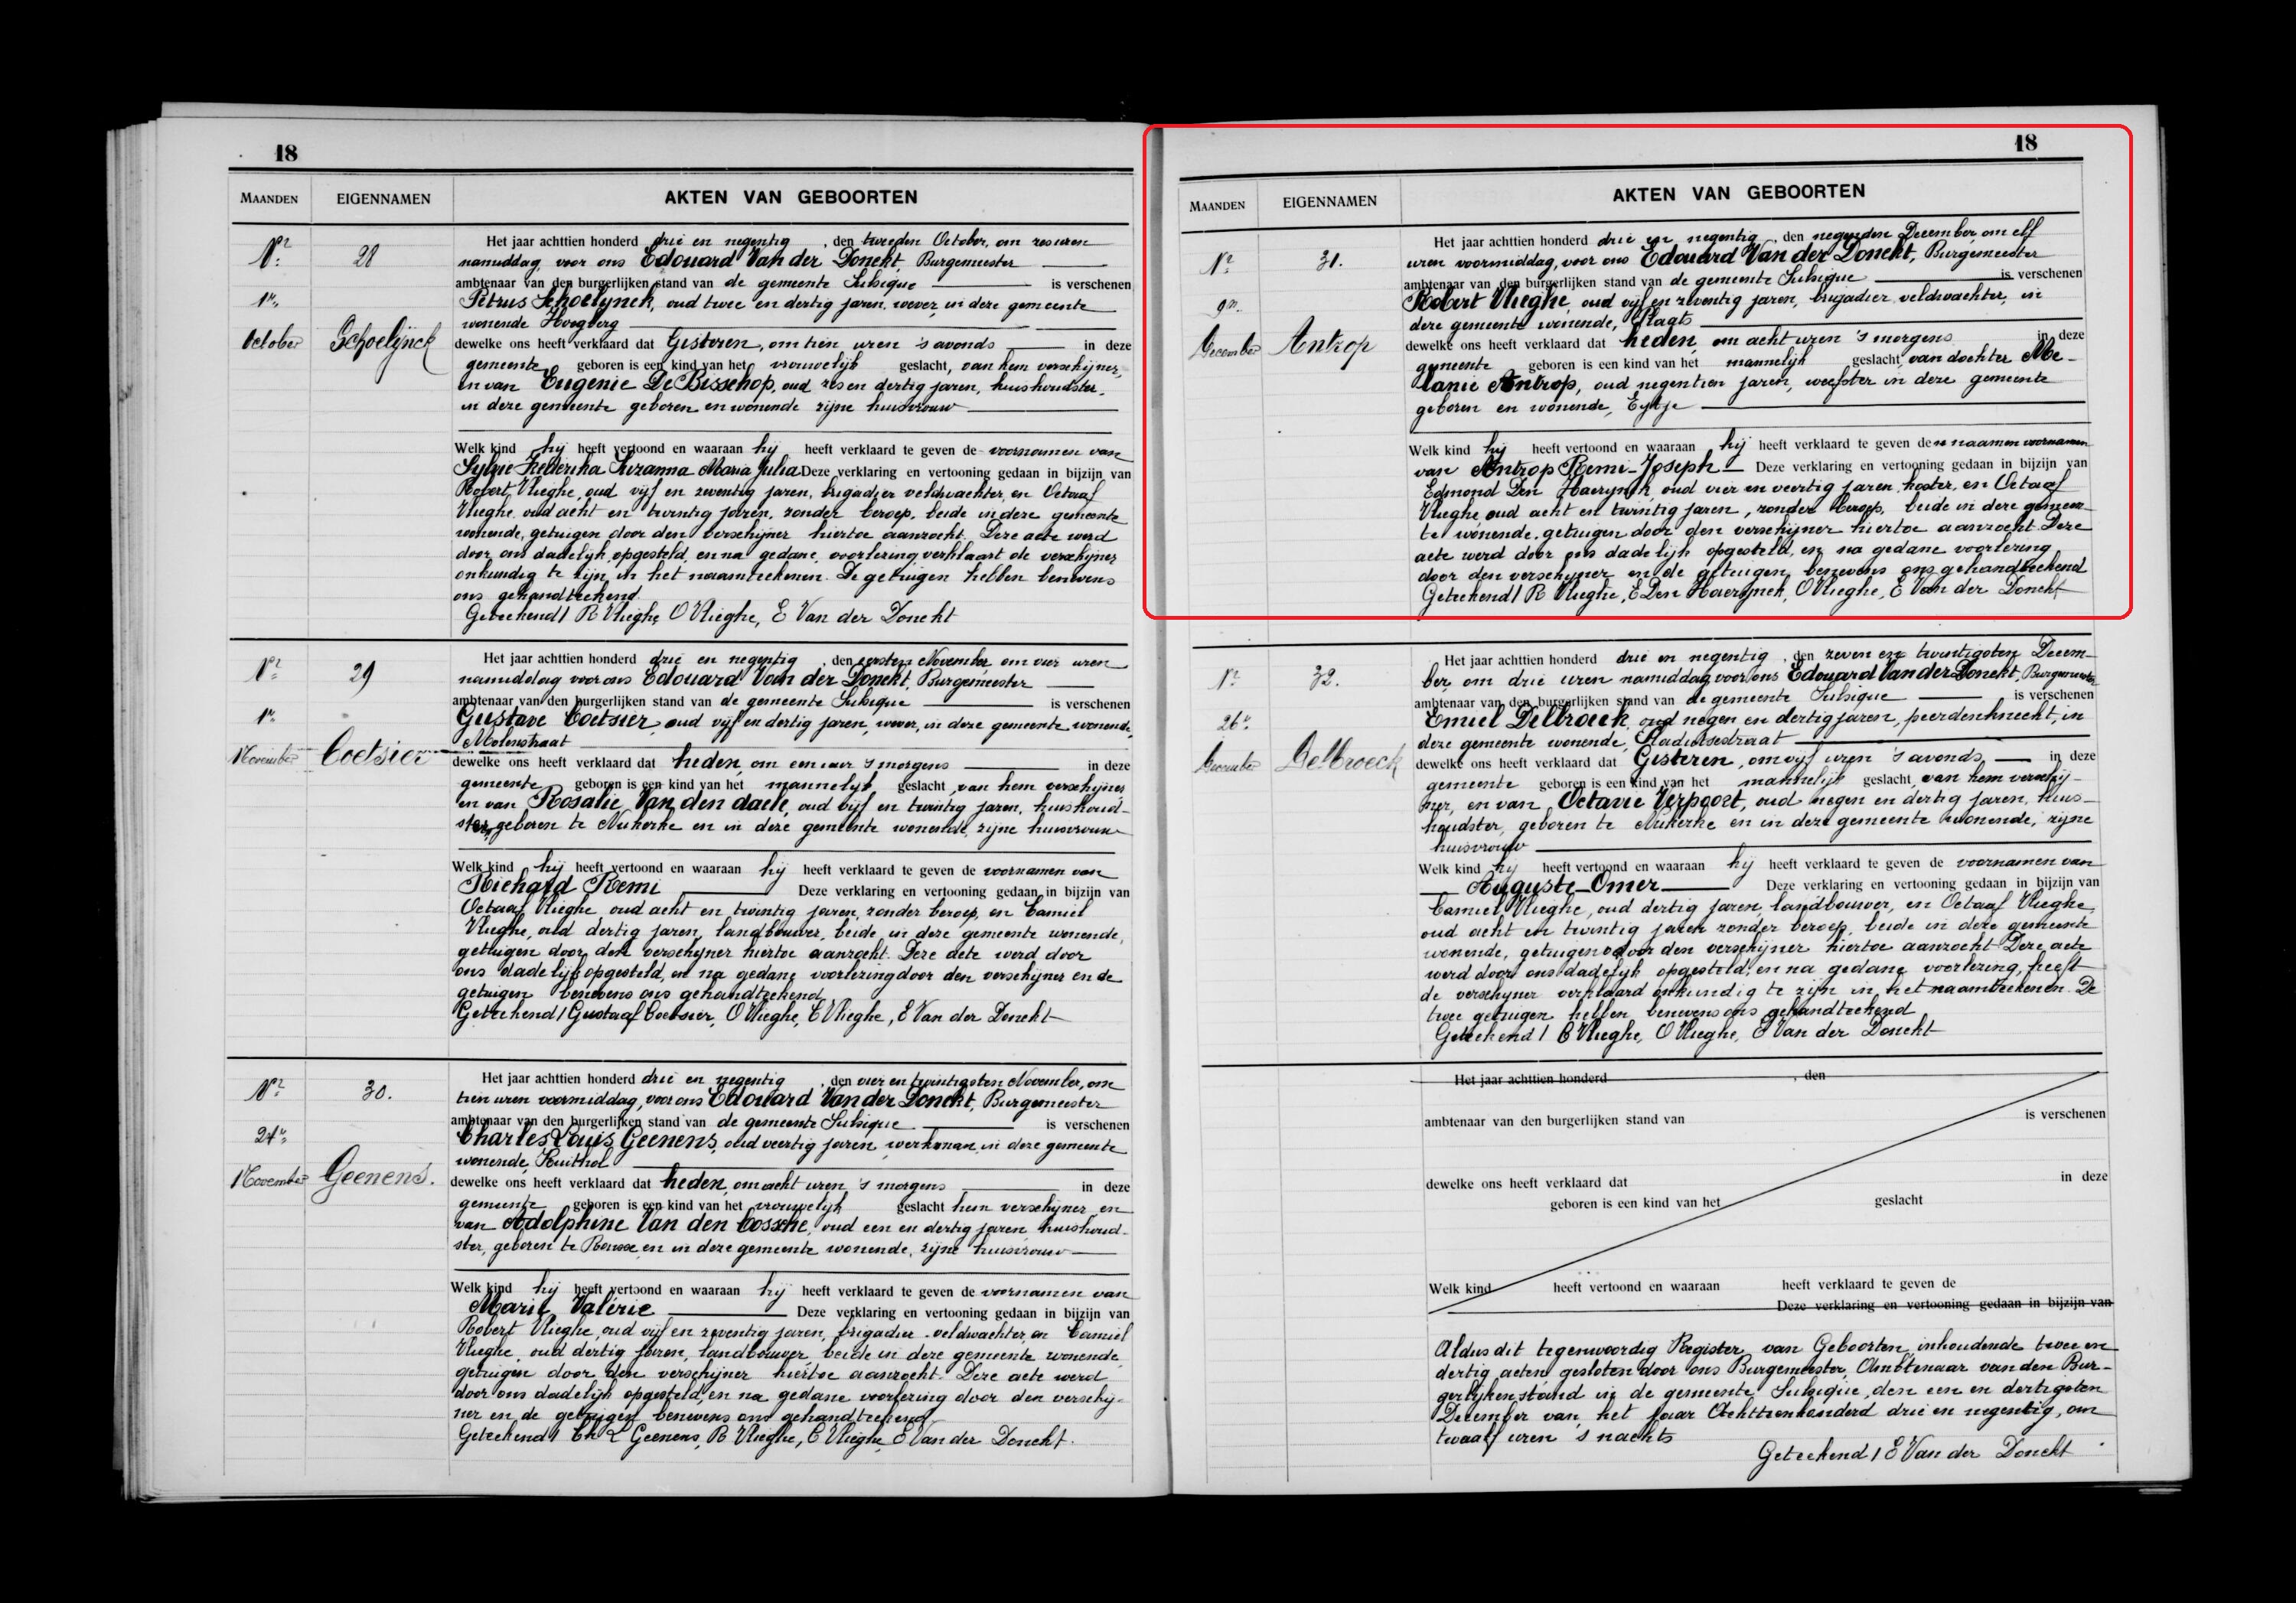 18
MAANDEN EIGENNAMEN AKTEN VAN GEBOORTEN
Nr 28
1n
October Schoelynck
Het jaar achttien honderd drie en negentig, den tweeden October, om zes uren
namiddag, voor ons Edouard Van der Donckt, Burgemeester
ambtenaar van den burgerlijken stand van de gemeente Sulsique is verschenen
Petrus Schoelynck, oud twee en dertig jaren, wever, in deze gemeente
wonende Hoogberg
dewelke ons heeft verklaard dat Gisteren, om tien uren 's avonds in deze
gemeente geboren is een kind van het vrouwelijk geslacht, van hem verschijner,
en van Eugenie De Bisschop, oud zes en dertig jaren, huishoudster,
in deze gemeente geboren en wonende zijne huisvrouw
Welk kind hij heeft vertoond en waaraan hij heeft verklaard te geven de voornamen van
Sylvie Frederika Suzanna Maria Julia Deze verklaring en vertooning gedaan in bijzijn van
Robert Vlieghe, oud vijf en zeventig jaren, brigadier veldwachter, en Octaaf
Vlieghe, oud acht en twintig jaren, zonder beroep, beide in deze gemeente
wonende, getuigen door den verschijner hiertoe aanzocht. Deze acte werd
door ons dadelijk opgesteld, en na gedane voorlezing verklaart de verschijner
onkundig te zijn in het naamteekenen. De getuigen hebben benevens
ons gehandteekend
Geteekend/ R Vlieghe, O Vlieghe, E Van der Donckt
Nr 29
1n
November Coetsier
Het jaar achttien honderd drie en negentig, den eersten November, om vier uren
namiddag voor ons Edouard Van der Donckt, Burgemeester
ambtenaar van den burgerlijken stand van de gemeente Sulsique is verschenen
Gustave Coetsier, oud vijf en dertig jaren, wever, in deze gemeente wonende,
Molenstraat
dewelke ons heeft verklaard dat heden, om een uur 's morgens in deze
gemeente geboren is een kind van het mannelijk geslacht, van hem verschijner
en van Rosalie Van den daele, oud vijf en twintig jaren, huishoud-
ster, geboren te Nukerke en in deze gemeente wonende, zijne huisvrouw
Welk kind hij heeft vertoond en waaraan hij heeft verklaard te geven de voornamen van
Richard Remi Deze verklaring en vertooning gedaan in bijzijn van
Octaaf Vlieghe, oud acht en twintig jaren, zonder beroep, en Camiel
Vlieghe, oud dertig jaren, landbouwer, beide in deze gemeente wonende,
getuigen door den verschijner hiertoe aanzocht. Deze acte werd door
ons dadelijk opgesteld, en na gedane voorlezing door den verschijner en de
getuigen benevens ons gehandteekend
Geteekend/ Gustaaf Coetsier, O Vlieghe, C Vlieghe, E Van der Donckt
Nr 30.
24n
November Geenens.
Het jaar achttien honderd drie en negentig, den vier en twintigsten November, om
tien uren voormiddag, voor ons Edouard Van der Donckt, Burgemeester
ambtenaar van den burgerlijken stand van de gemeente Sulsique is verschenen
Charles Louis Geenens, oud veertig jaren, werkman, in deze gemeente
wonende, Ruithol
dewelke ons heeft verklaard dat heden, om acht uren 's morgens in deze
gemeente geboren is een kind van het vrouwelijk geslacht hem verschijner en
van Adolphine Van den bossche, oud een en dertig jaren, huishoud-
ster, geboren te Ronse en in deze gemeente wonende, zijne huisvrouw
Welk kind hij heeft vertoond en waaraan hij heeft verklaard te geven de voornamen van
Marie Valérie Deze verklaring en vertooning gedaan in bijzijn van
Robert Vlieghe, oud vijf en zeventig jaren, brigadier-veldwachter, en Camiel
Vlieghe, oud dertig jaren, landbouwer beide in deze gemeente wonende
getuigen door den verschijner hiertoe aanzocht. Deze acte werd
door ons dadelijk opgesteld, en na gedane voorlezing door den verschij-
ner en de getuigen benevens ons gehandteekend
Geteekend/ Ch L Geenens, R Vlieghe, C Vlieghe, E Van der Donckt.
18
MAANDEN EIGENNAMEN AKTEN VAN GEBOORTEN
Nr 31.
9n
December Antrop
Het jaar achttien honderd drie en negentig, den negenden December om elf
uren voormiddag, voor ons Edouard Van der Donckt, Burgemeester
ambtenaar van den burgerlijken stand van de gemeente Sulsique is verschenen
Robert Vlieghe, oud vijf en zeventig jaren, brigadier veldwachter, in
deze gemeente wonende, Plaats
dewelke ons heeft verklaard dat heden, om acht uren 's morgens in deze
gemeente geboren is een kind van het mannelijk geslacht, van dochter Me-
lanie Antrop, oud negentien jaren, weefster in deze gemeente
geboren en wonende, Eytje
Welk kind hij heeft vertoond en waaraan hij heeft verklaard te geven den naam en voornamen
van Antrop Remi-Joseph Deze verklaring en vertooning gedaan in bijzijn van
Edmond Den Haerynck, oud vier en veertig jaren, koster, en Octaaf
Vlieghe, oud acht en twintig jaren, zonder beroep, beide in deze gemeen-
te wonende, getuigen door den verschijner hiertoe aanzocht. Deze
acte werd door ons dadelijk opgesteld, en na gedane voorlezing
door den verschijner en de getuigen, benevens ons gehandteekend
Geteekend/ R Vlieghe, E Den Haerynck, O Vlieghe, E Van der Donckt
Nr 32.
26n
December Delbroeck
Het jaar achttien honderd drie en negentig, den zeven en twintigsten Decem-
ber, om drie uren namiddag voor ons Edouard Van der Donckt, Burgemeester
ambtenaar van den burgerlijken stand van de gemeente Sulsique is verschenen
Emiel Delbroeck, oud negen en dertig jaren, peerdenknecht, in
deze gemeente wonende,
dewelke ons heeft verklaard dat Gisteren, om vijf uren 's avonds in deze
gemeente geboren is een kind van het mannelijk geslacht, van hem verschij-
ner, en van Octavie Verpoort, oud negen en dertig jaren, huis-
houdster, geboren te Nukerke en in deze gemeente wonende, zijne
huisvrouw
Welk kind hij heeft vertoond en waaraan hij heeft verklaard te geven de voornamen van
Auguste-Omer Deze verklaring en vertooning gedaan in bijzijn van
Camiel Vlieghe, oud dertig jaren, landbouwer, en Octaaf Vlieghe,
oud acht en twintig jaren zonder beroep, beide in deze gemeente
wonende, getuigen door den verschijner hiertoe aanzocht Deze acte
werd door ons dadelijk opgesteld, en na gedane voorlezing, heeft
de verschijner verklaard onkundig te zijn in het naamteekenen. De
twee getuigen hebben benevens ons gehandteekend
Geteekend/ C Vlieghe, O Vlieghe, E Van der Donckt
Het jaar achttien honderd , den
ambtenaar van den burgerlijken stand van is verschenen
dewelke ons heeft verklaard dat in deze
geboren is een kind van het geslacht
Welk kind heeft vertoond en waaraan heeft verklaard te geven de
Deze verklaring en vertooning gedaan in bijzijn van
Aldus dit tegenwoordig Register van Geboorten, inhoudende twee en
dertig acten, gesloten door ons Burgemeester, Ambtenaar van den Bur-
gerlijken stand in de gemeente Sulsique, den een en dertigsten
December van het jaar Achttienhonderd drie en negentig, om
twaalf uren 's nachts
Geteekend/ E Van der Donckt